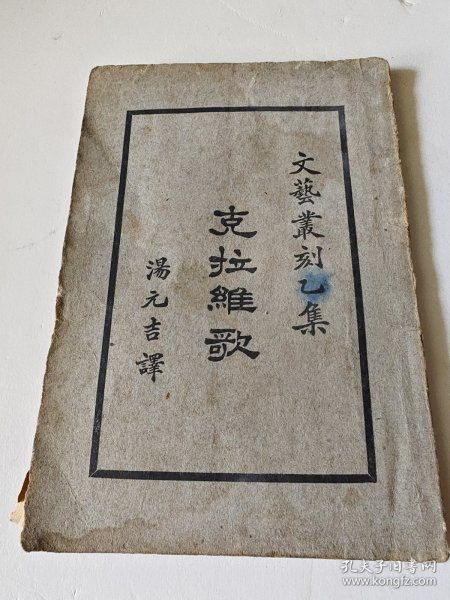 文藝叢刻乙集
克拉維歌
湯元吉譯
孔夫子旧书网
www.kongfz.com